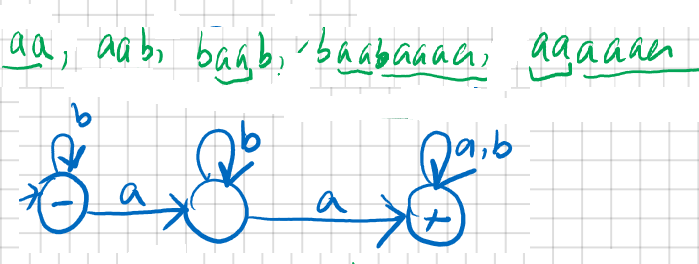 aa, aab, baab, baabaaaa, aaaaaa
b b a,b
- a a +